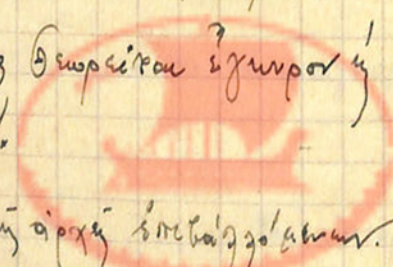 θεωρεῖται ἔγκυρον ἡ
ἀρχῇ ἐπιβαλλόμενων.